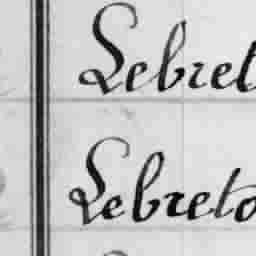 Lebret
Lebreto